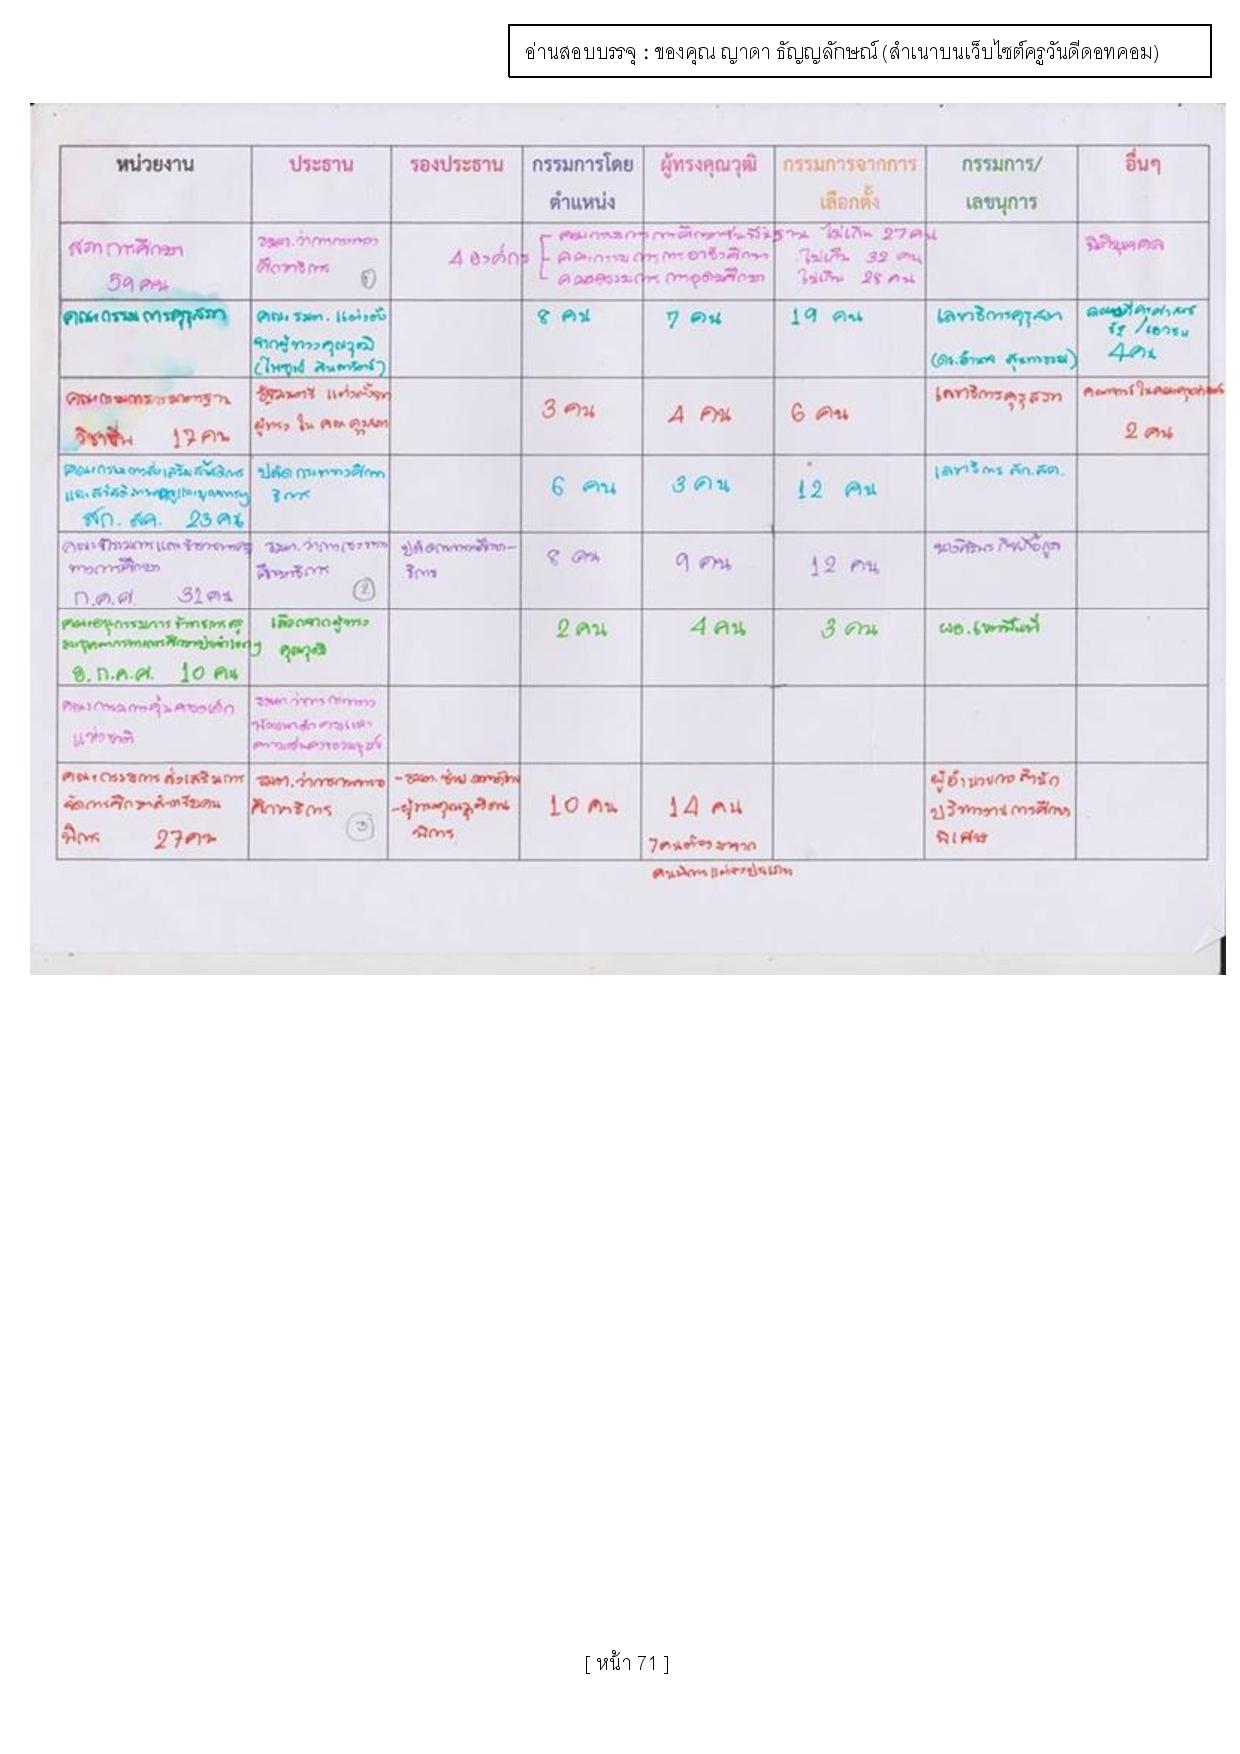 อ่านสอบบรรจุ : ของคุณ ญาดา ธัญญลักษณ์ (สำเนาบนเว็บไซต์ครูวันดีดอทคอม)
หน่วยงาน ประธาน รองประธาน กรรมการโดยตำแหน่ง ผู้ทรงคุณวุฒิ กรรมการจากการเลือกตั้ง กรรมการ/เลขานุการ อื่นๆ
สภาการศึกษา
59 คน
รมต.ว่าการกระทรวง
ศึกษาธิการ ①
4 องค์กร
คณะกรรมการการศึกษาขั้นพื้นฐาน ไม่เกิน 27 คน
คณะกรรมการการอาชีวศึกษา ไม่เกิน 32 คน
คณะกรรมการการอุดมศึกษา ไม่เกิน 28 คน
นิติบุคคล
คณะกรรมการคุรุสภา
คณะ รมต. แต่งตั้ง
จากผู้ทรงคุณวุฒิ
8 คน 7 คน 19 คน
เลขาธิการคุรุสภา
รัฐ/เอกชน
4 คน
คณะกรรมการมาตรฐาน
วิชาชีพ 17 คน
รัฐมนตรี แต่งตั้งจาก
ผู้ทรง ใน คณะ คุรุสภา
3 คน 4 คน 6 คน
เลขาธิการคุรุสภา
2 คน
คณะกรรมการส่งเสริมสวัสดิการ
สก. สค. 23 คน
ปลัดกระทรวงศึกษา
ธิการ
6 คน 3 คน 12 คน
เลขาธิการ สก.สค.
ทางการศึกษา
ก.ค.ศ. 31 คน
รมต.ว่าการกระทรวง
ศึกษาธิการ ②
ปลัดกระทรวงศึกษา-
ธิการ
8 คน 9 คน 12 คน
คณะอนุกรรมการ ข้าราชการครู
อ.ก.ค.ศ. 10 คน
เลือกจากผู้ทรง
คุณวุฒิ
2 คน 4 คน 3 คน
ผอ.เขตพื้นที่
คณะกรรมการคุ้มครองเด็ก
แห่งชาติ
รมต.ว่าการกระทรวง
พัฒนาสังคมและ
ความมั่นคงของมนุษย์
คณะกรรมการส่งเสริมการ
จัดการศึกษาสำหรับคน
พิการ 27 คน
รมต.ว่าการกระทรวง
ศึกษาธิการ ③
-ผู้ทรงคุณวุฒิด้าน
พิการ
10 คน 14 คน
7 คนต้องมาจาก
คนพิการแต่ละประเภท
ผู้อำนวยการสำนัก
บริหารงานการศึกษา
พิเศษ
[ หน้า 71 ]